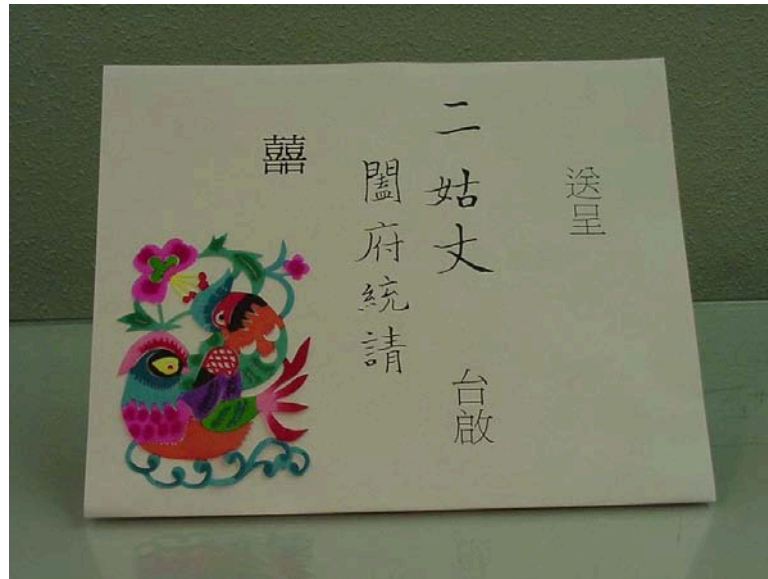 送呈
二姑丈 台啟
闔府統請
囍